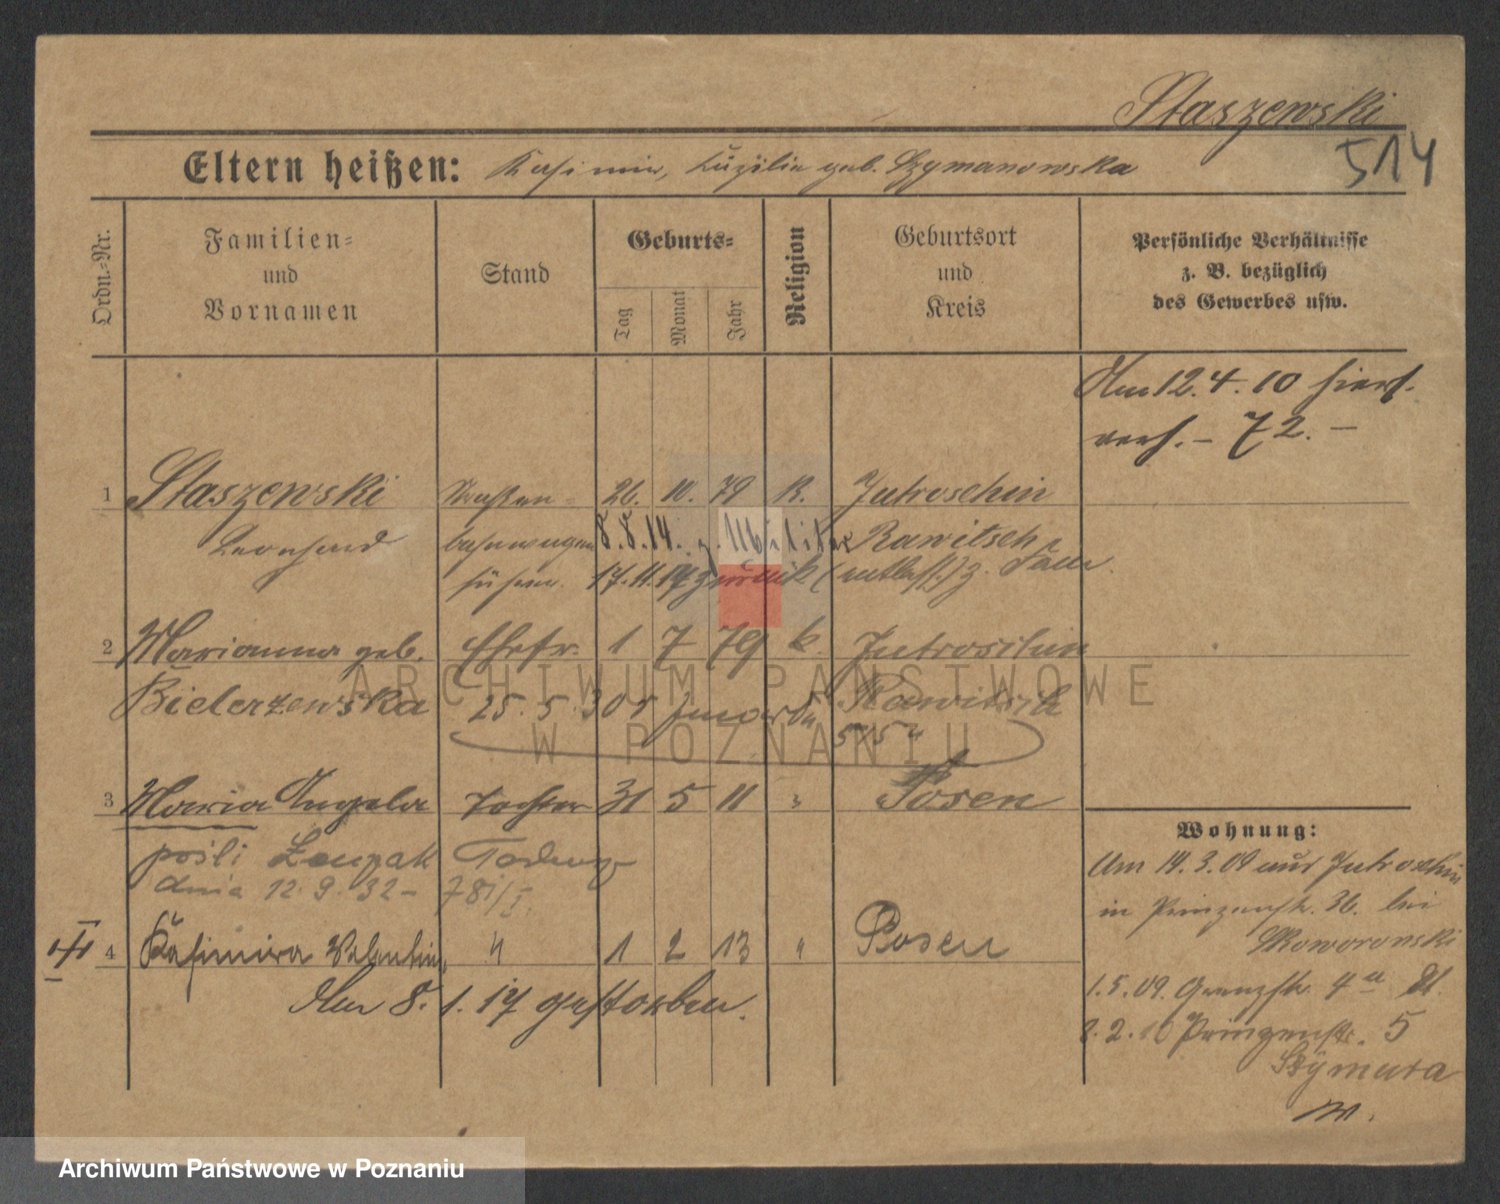 Staszewski
514
Eltern heißen: Kasimir, Luzilia geb. Szymanowska
Ordn.=Nr.
Familien= und Vornamen
Stand
Geburts=
Tag
Monat
Jahr
Religion
Geburtsort und Kreis
Persönliche Verhältnisse
z. B. bezüglich
des Gewerbes usw.
Am 12.4.10 hiers.
verh. – 72. –
1 Staszewski Straßen= 26. 10. 79 K. Jutroschin
Leonhard bahnwagen 8.8.14. z. Militär Rawitsch
führer. 17.11.14 zurück (entlass.) z. Fam.
2 Marianna geb. Ehefr. 1 7 79 k. Jutroschin
Bielerzewska 25.5.30 Rawitsch
3 Maria Angela Tochter 31 5 11 " Posen
pośli
dnia 12.9.32 –
4 Kasimira Valentin. " 1 2 13 " Posen
Am 8.1.17 gestorben.
Wohnung:
Am 14.3.09 aus Jutroschin
in Prinzenstr. 36. bei
Skoworonski
1.5.09. Grenzstr. 4a
8.2.10 Prinzenstr. 5
Szymura
ARCHIWUM PAŃSTWOWE
W POZNANIU
Archiwum Państwowe w Poznaniu